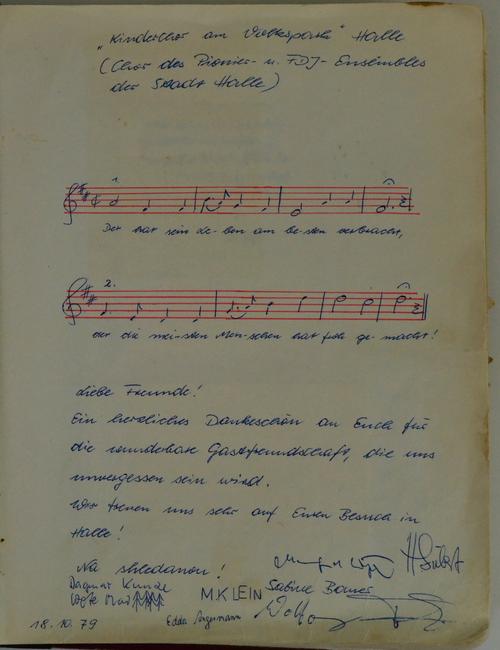 „Kinderchor am Volkspark" Halle
(Chor des Pionier- u. FDJ-Ensembles
der Stadt Halle)
1.
Der hat sein Le-ben am be-sten verbracht,
2.
der die mei-sten Men-schen hat froh ge-macht!
Liebe Freunde!
Ein herzliches Dankeschön an Euch für
die wunderbare Gastfreundschaft, die uns
unvergessen sein wird.
Wir freuen uns sehr auf Euren Besuch in
Halle!
Na shledanou!
Dagmar Kunze
M. KLEIN
Sabine Bauer
Edda
18.10.79